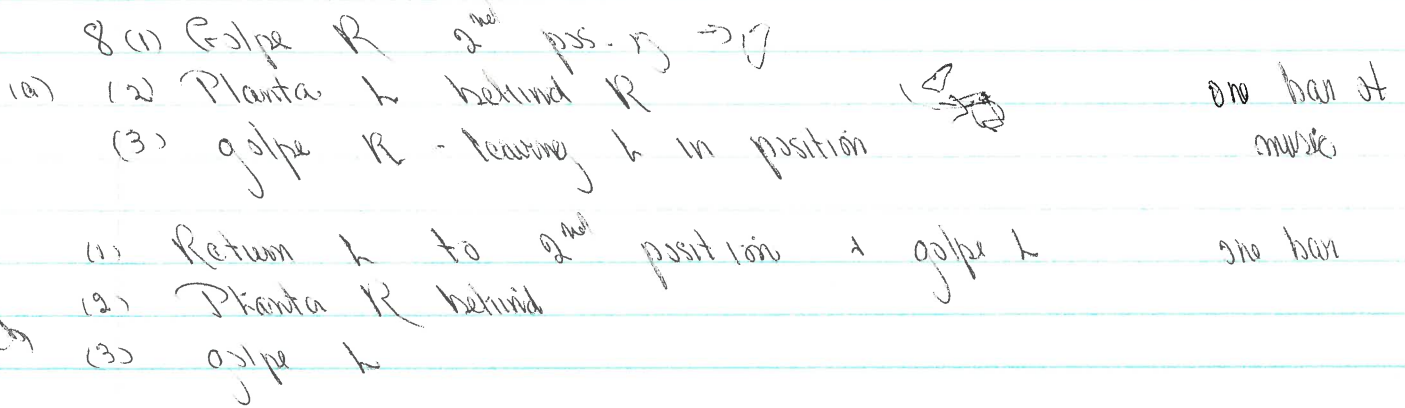 8 (1) Golpe R 2nd pos. →
(a) (2) Planta L behind R one bar of
(3) golpe R - leaving L in position music
(1) Return L to 2nd position + golpe L one bar
(2) Planta R behind
b) (3) golpe L